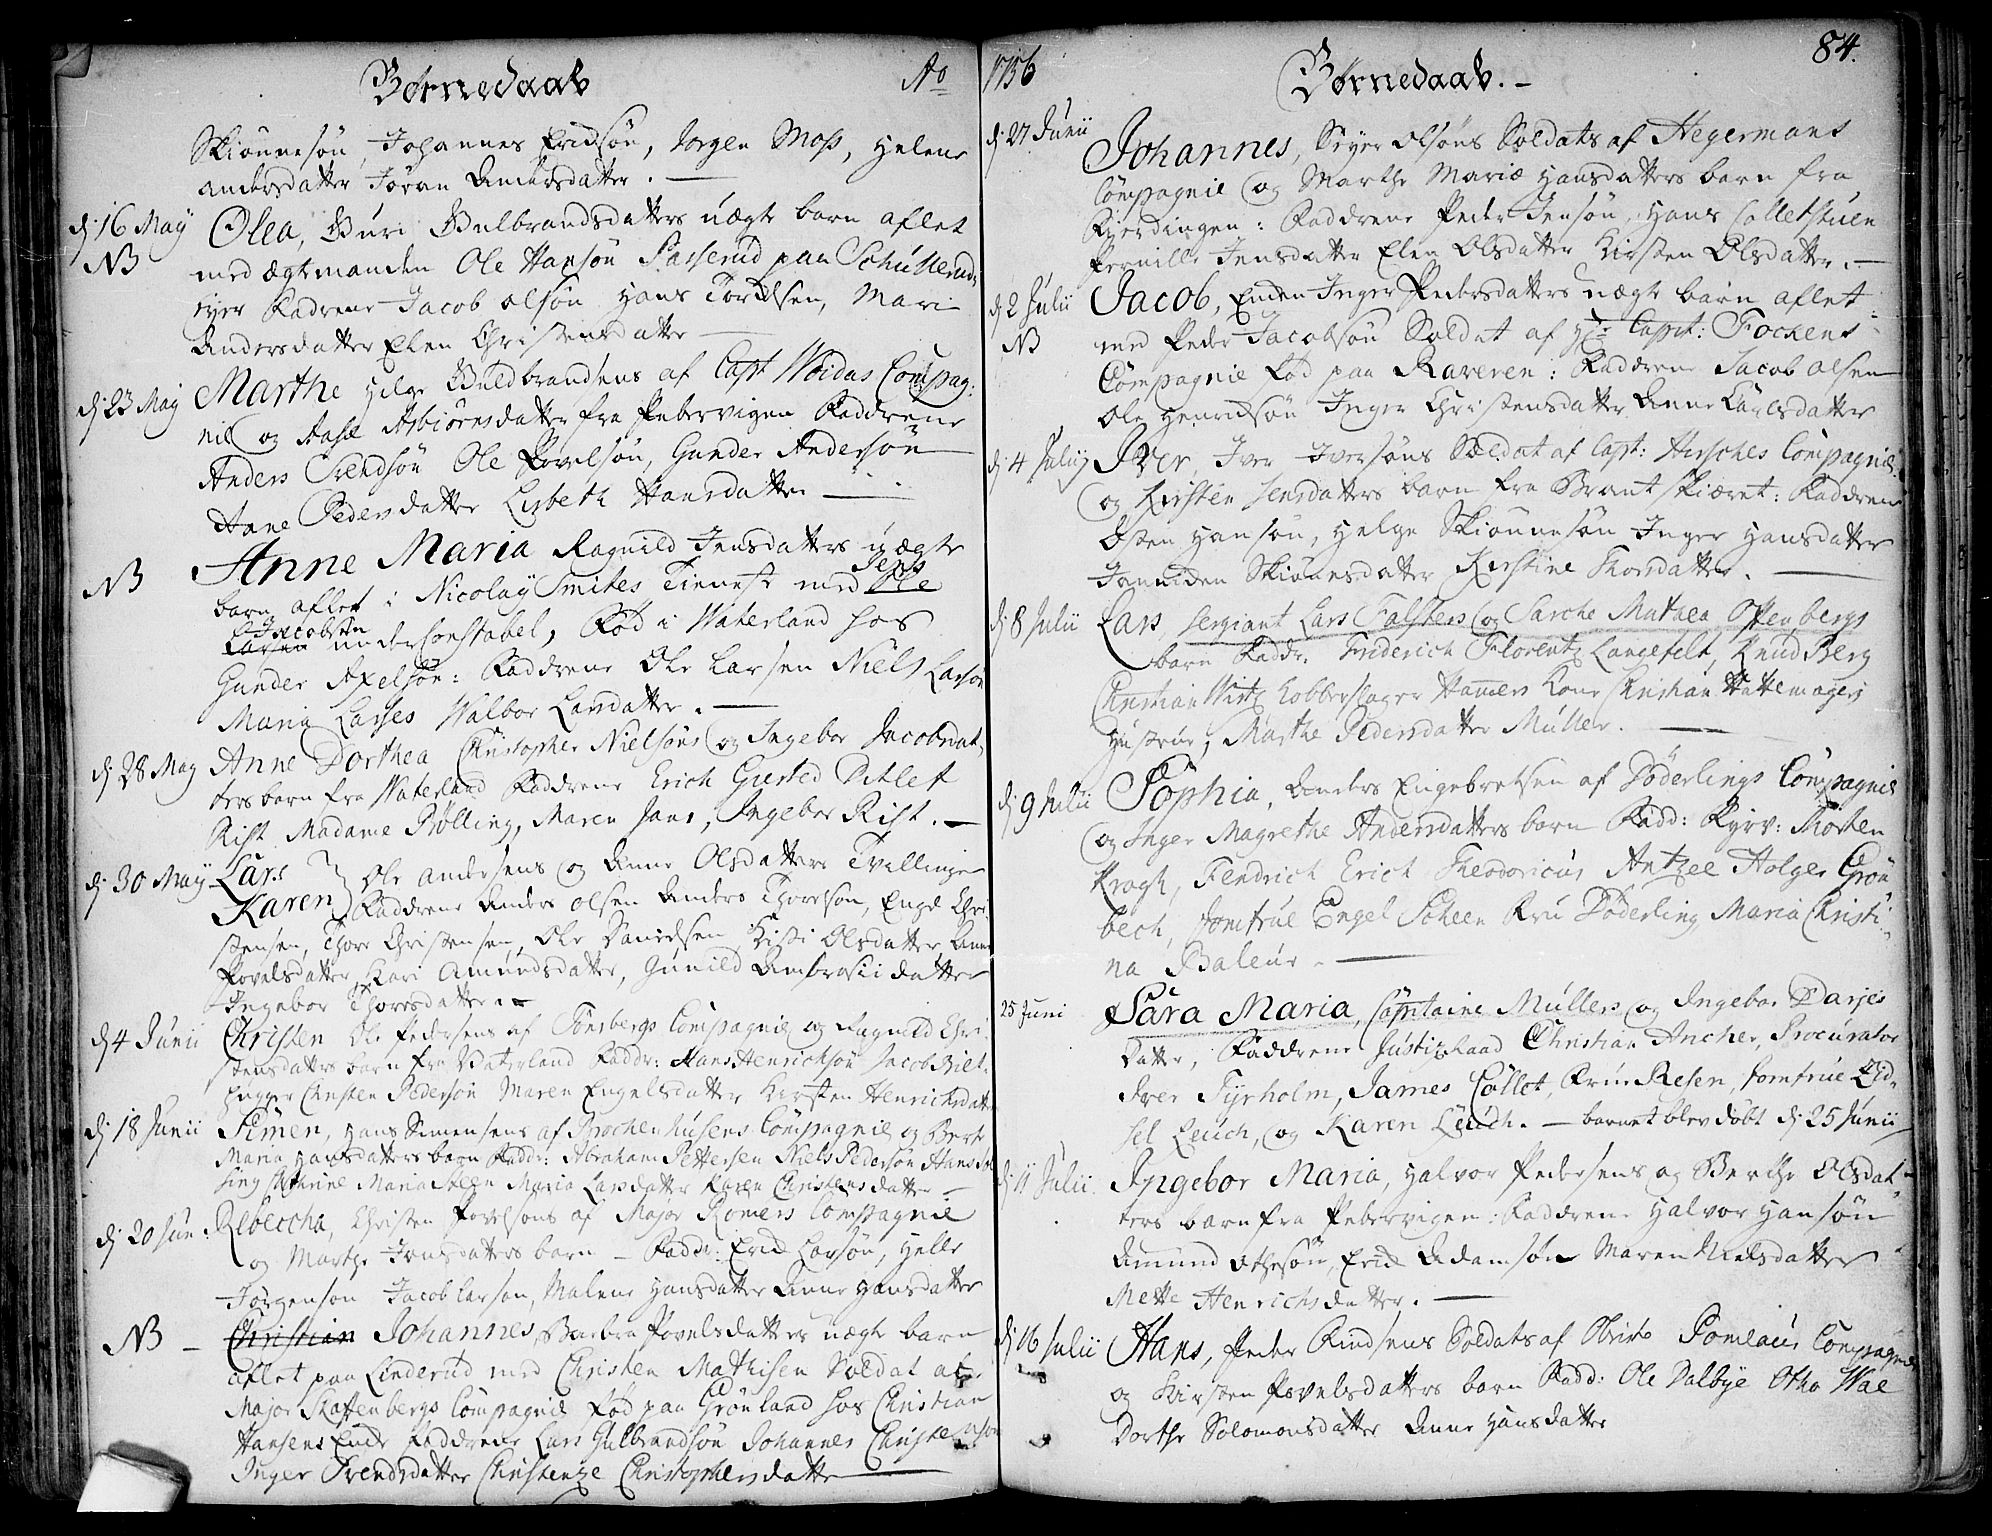 Børnedaab Ao
Skiønnesøn, Johannes Erichsøn, Jørgen Moss, Helene
Andersdatter Jøran Andersdatter. —
dj 16 May Olea, Guri Gulbrandsdatters uægte barn aflet
NB med ægtmanden Ole Hansøn Passerud paa Schullerud
ejer Fadrene Jacob Olsøn Hans Toridsen, Mari
Andersdatter Elen Christensdatter —
dj 23 May Marthe Helge Guldbrandsens af Capt Woidas Compag:
nie og Aase Asbiørnsdatter fra Pebervigen Faddrene
Anders Svendsøn Ole Povelsøn, Gunder Andersøn
Anne Pedersdatter Lisbeth Hansdatter —
NB Anne Maria Ragnild Jensdatters uægte
barn aflet i Nicolay Smithes Tieneste med Ole Jens
Jacobsen
Larsen under Constabel, Fød i Waterland hos
Gunder Axelsøn: Faddrene Ole Larsen Niels Larsøn
Maria Larses Walbor Larsdatter. —
dj 28 May Anne Dorthea Christopher Nielsøns og Ingebor Jacobsdat
ters barn fra Waterland Faddrene Erich Giersted Ditlef
Rist Madame Bølling, Maren Jans, Ingebor Rist. —
dj 30 May Lars Ole Andersens og Anne Olsdatters Tvillinger
Karen Faddrene Anders Olsen Anders Thoresøn, Engel Chri
stensen, Thore Christensen, Ole Davidsen Kisti Olsdatter Anne
Povelsdatter, Kari Amundsdatter, Gunild Ambrosii datter
Ingebor Thoresdatter. —
dj 4 Junii Christen Ole Pedersens af Tønsbergs Compagnie og Ragnild Chri
stensdatters barn fra Vaterland Faddr: Hans Henrichsøn Jacob Biel
hugger Christen Pedersøn Maren Engelsdatter Kirsten Henrichsdatter
dj 18 Junii Simen, Hans Simensens af Brochenhusens Compagnie og Berte
Maria Hansdatters barn Faddr: Abraham Pettersen Niels Pedersøn Hans
Cathrine Maria Steen Maria Larsdatter Karen Christensdatter —
dj 20 Jun: Rebeccha, Christen Povelsøns af Major Rømers Compagnie
og Marthe Jonsdatters barn — Faddr: Erich Larsøn, Helle
Jørgensøn Jacob Larsen, Malene Hansdatter Anne Hansdatter
NB — Christian Johannes, Barbra Povelsdatters uægte barn
aflet paa Linderud med Christen Mathisen Soldat af
Major Staffenbergs Compagnie Fød paa Grønland hos Christian
Hansens Enke Faddrene Lars Gulbrandsøn Johannes Christensøn
Inger Svendsdatter Christense Christophersdatter —
1756 Børnedaab. — 84.
dj 27 Junii Johannes, Siyer Olsøns Soldats af Hegermans
Compagnie og Marthe Mariæ Hansdatters barn fra
Bierdingen: Faddrene Peder Jensøn, Hans Colletstuen
Pernille Jensdatter Elen Olsdatter Kirsten Olsdatter. —
dj 2 Julii Jacob, Enken Inger Pedersdatters uægte barn aflet
NB med Peder Jacobsøn Soldat af Hr Capit: Fochens
Compagnie Fød paa Raveren: Faddrene Jacob Olsen
Ole Henrichsøn Inger Christensdatter Anne Larsdatter
dj 4 Julij Iver, Iver Iversøns Soldat af Capt: Hirsches Compagnie
og Kirsten Jensdatters barn fra Brantskiæret: Faddrene
Østen Hansøn, Helge Skiønnesøn Inger Hansdatter
Skiønnesdatter Kirstine Thorsdatter. —
dj 8 Julii Lars, Sergiant Lars Falsters og Sarche Mathea Offenbergs
barn Faddr. Friderich Florentz Langefelt, Knud Berg
Christian Wirtz Kobberslager Hammers Kone Christian Hattemagers
Hustrue, Marthe Pedersdatter Müller. —
dj 9 Julii Sophia, Anders Engebretsen af Døderlings Compagnie
og Inger Magrethe Andersdatters barn Fadd: Ryxv: Morten
Kragh, Fendrich Erich Theodoricus Antzee Holger Grøn
bech, Jomfrue Engel Scheen Fru Døderling, Maria Christi:
na Baleur. —
25 Juni Sara Maria, Capitaine Müllers og Ingebor Darjes
datter, Faddrene Justizraad Christian Ancher, Procurator
Iver Tyrholm, James Collet, Frue Resen, Jomfrue Lid,
sel Leuch, og Karen Leuch. — barnet blev døbt dj 25 Junii
dj 11 Julii Ingebor Maria, Halvor Pedersens og Berthe Olsdat
ters barn fra Pebervigen: Faddrene Halvor Hansøn
Amund Othesøn, Erich Adamsøn Maren Nielsdatter
Mette Henrichsdatter. —
dj 16 Julii Hans, Peder Knudsens Soldats af Obriste Pomlaus Compagnie
og Kirsten Povelsdatters barn Fadd: Ole Dalbye Otho Wae
Dorthe Solomonsdatter Anne Hansdatter